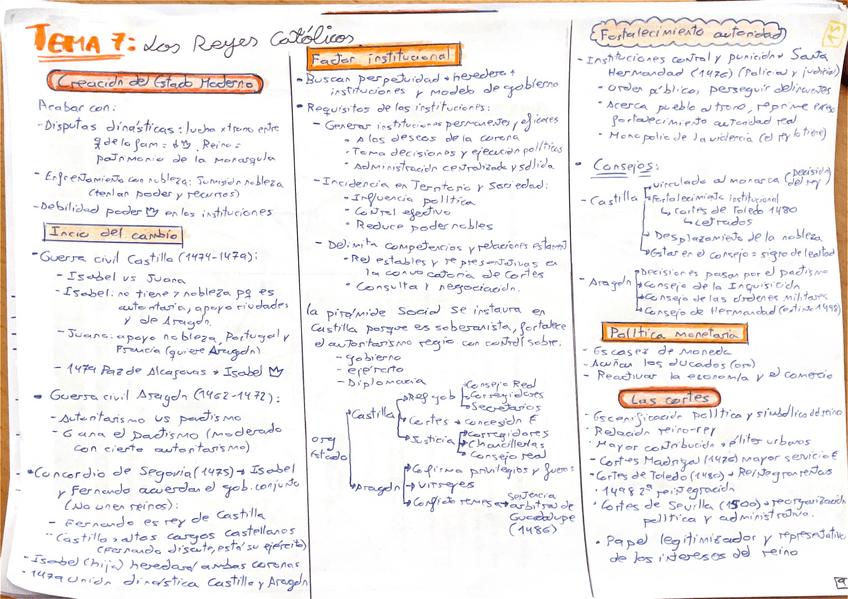 TEMA 7: Los Reyes Católicos
Creación del Estado Moderno
Acabar con:
- Disputas dinásticas: lucha x trono entre
de la fam = Reino =
patrimonio de la monarquía
- Enfrentamiento con nobleza: sumisión nobleza
(tenían poder y recursos)
- Debilidad poder en las instituciones
Inicio del cambio
• Guerra civil Castilla (1474-1479):
- Isabel vs Juana
- Isabel: no tiene nobleza pq es
autoritaria, apoyo ciudades
y de Aragón.
- Juana: apoyo nobleza, Portugal y
Francia (quiere Aragón)
- 1479 Paz de Alcaçovas → Isabel
• Guerra civil Aragón (1462-1472):
- Autoritarismo vs pactismo
- Gana el Pactismo (moderado
con cierto autoritarismo)
• Concordio de Segovia (1475) → Isabel
y Fernando acuerdan el gob. conjunto
(No unen reinos):
- Fernando es rey de Castilla
- Castilla → altos cargos castellanos
(Fernando disfruta, está su ejército)
- Isabel (hija) heredará ambas coronas
- 1479 Unión dinástica Castilla y Aragón
Factor institucional
• Buscan perpetuidad → heredera +
instituciones y modelo de gobierno
• Requisitos de las instituciones:
- Generar instituciones permanentes y eficaces
• A los deseos de la corona
• Toma decisiones y ejecución políticas
• Administración centralizada y sólida
- Incidencia en Territorio y Sociedad:
• Influencia política
• Control efectivo
• Reduce poder nobles
- Delimita competencias y relaciones estament
• Rel estables y representativas en
la convocatoria de Cortes
• Consulta y negociación.
La pirámide Social se instaura en
Castilla porque es soberanista, fortalece
el autoritarismo regio con control sobre:
- gobierno
- ejército
- Diplomacia
org Estado
Castilla
Reg gob
Consejo Real
Corregidores
Secretarios
Cortes → concesión €
Justicia
Corregidores
Chancillerías
Consejo real
Aragón
Cofirma privilegios y fueros
Virreyes
Conflicto remesa → sentencia
arbitral de
Guadalupe
(1486)
Fortalecimiento autoridad
- Instituciones control y punición → Santa
Hermandad (1476) (Policial y judicial)
• Orden público, perseguir delincuentes
• Acerca pueblo al trono, reprime
fortalecimiento autoridad real
• Monopolio de la violencia (el rey lo tiene)
• Consejos:
- Castilla
Vinculado al monarca (Decisión del rey)
Fortalecimiento institucional
↳ Cortes de Toledo 1480
↳ Letrados
Desplazamiento de la nobleza
Estar en el consejo = signo de lealtad
- Aragón
Decisiones pasan por el pactismo
Consejo de la Inquisición
Consejo de las órdenes militares
Consejo de Hermandad (extinto 1498)
Política monetaria
- Escasez de moneda
- Acuñan los ducados (oro)
- Reactivar la economía y el comercio
Las cortes
- Escenificación política y simbólica del reino
• Relación reino-rey
• Mayor contribución → élites urbanas
- Cortes Madrigal (1476) mayor servicio €
- Cortes de Toledo (1480) → Reintegran rentas
• 1498 2ª reintegración
• Cortes de Sevilla (1500) → reorganización
política y administrativa.
• Papel legitimizador y representativo
de los intereses del reino